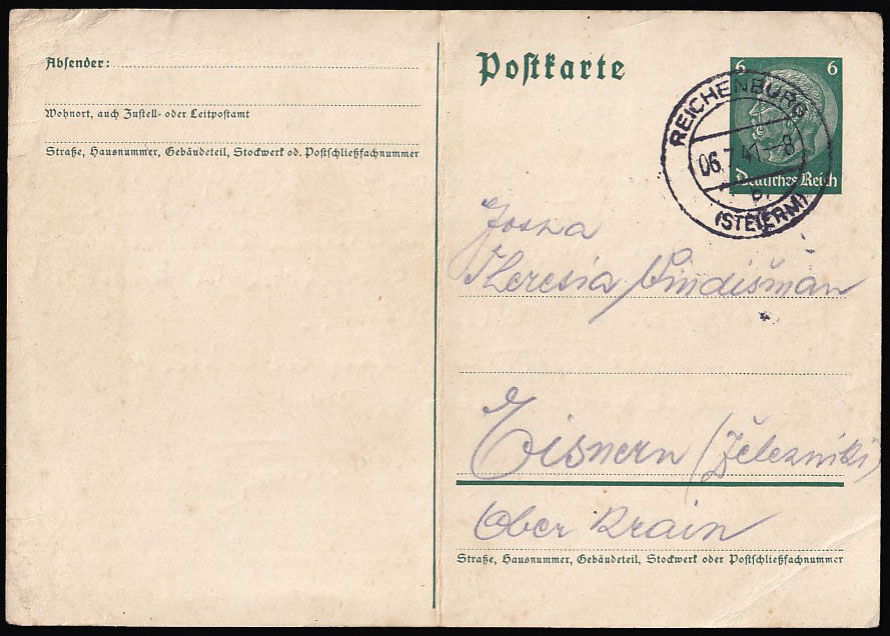 Absender:
Wohnort, auch Zustell- oder Leitpostamt
Straße, Hausnummer, Gebäudeteil, Stockwerk od. Postschließfachnummer
Postkarte
6 6
Deutsches Reich
REICHENBURG
06.7.41.-8
(STEIERM)
Theresia Vindišman
Eisnern (Železniki)
Ober Krain
Straße, Hausnummer, Gebäudeteil, Stockwerk oder Postschließfachnummer